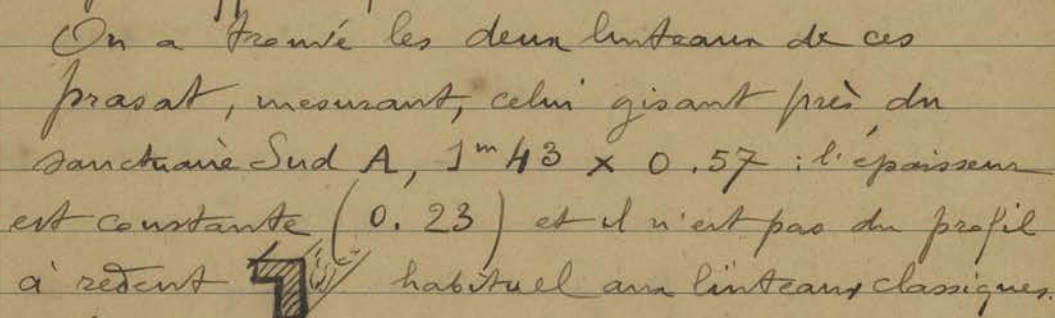 On a trouvé les deux linteaux de ces
prasat, mesurant, celui gisant près du
sanctuaire Sud A, 1m43 x 0.57 : l'épaisseur
est constante (0.23) et il n'est pas du profil
à redent habituel aux linteaux classiques.